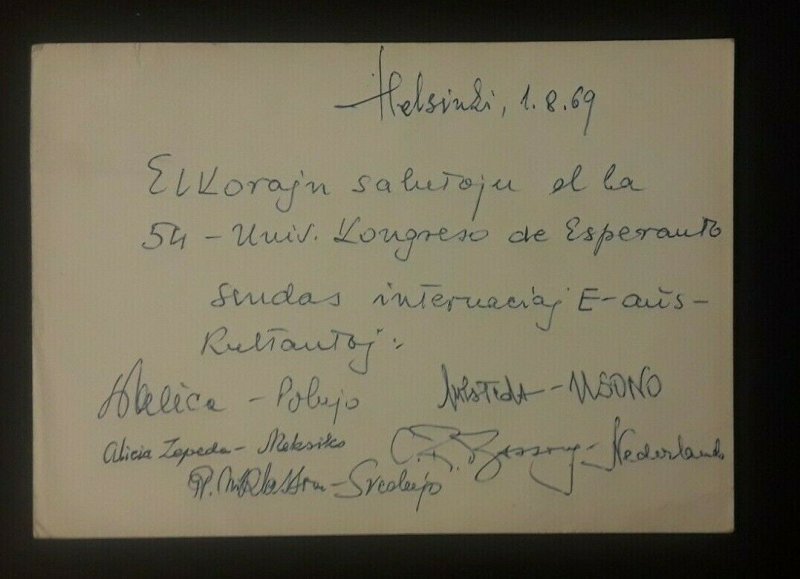 Helsinki, 1.8.69
Elkorajn salutojn el la
54-Univ. Kongreso de Esperanto
sendas internaciaj E-aŭs-
kultantoj:
- Polujo - USONO
Alicia Zepeda - Meksiko - Nederland
- Svedujo